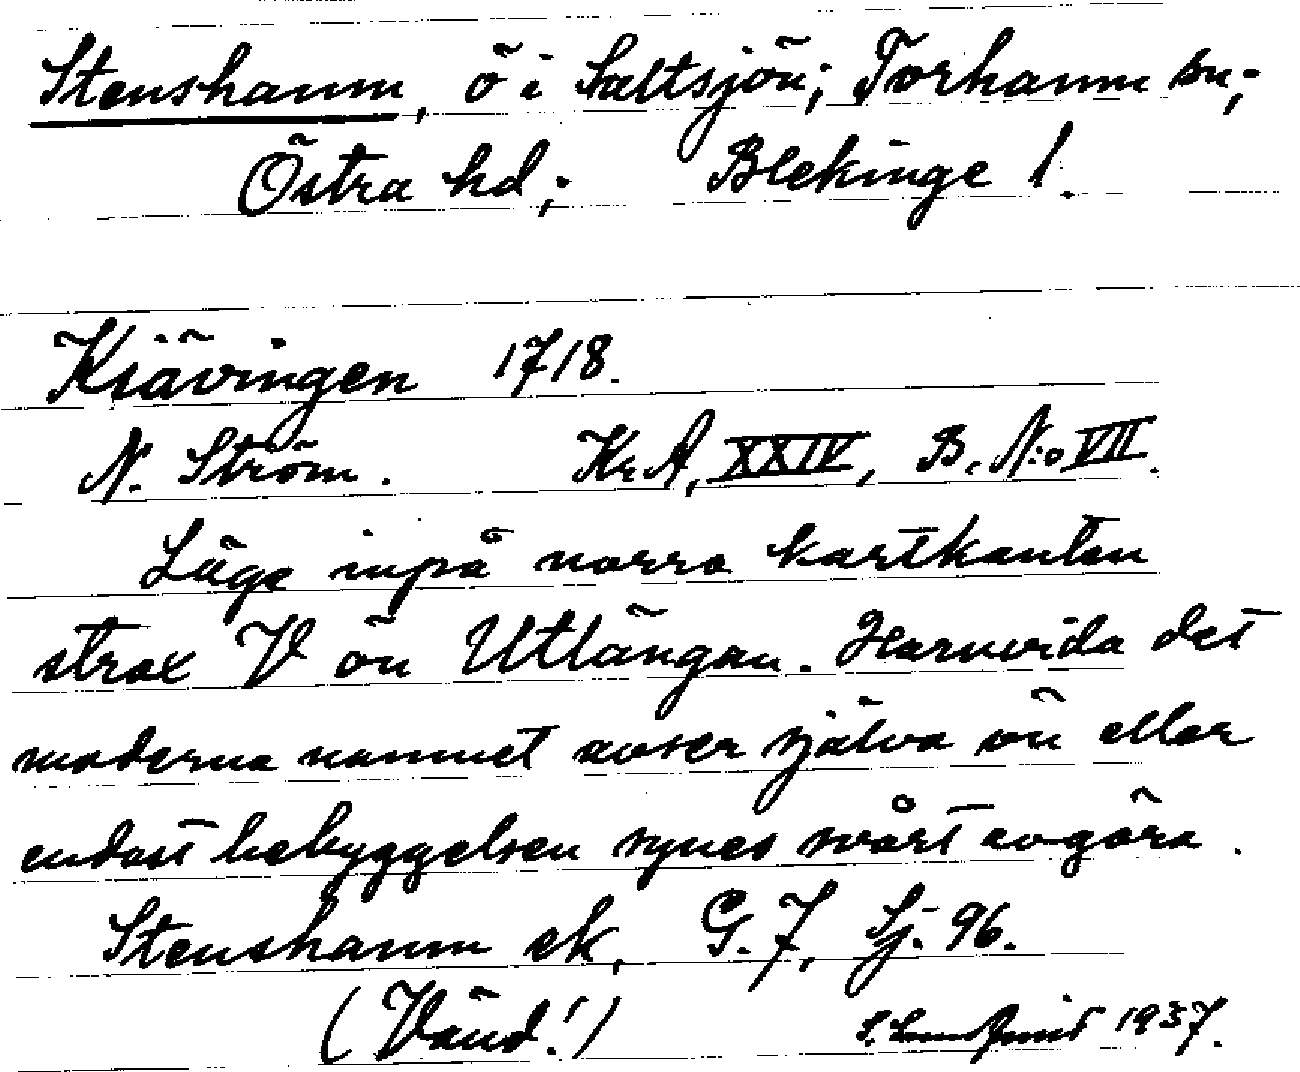 Stenshamn, ö i Saltsjön; Torhamn sn,;
Östra hd,; Blekinge l.
Kiävingen 1718.
N. Ström. Kr.A, XXIV, B. N:o VII.
Läge inpå norra kartkanten
strax V ön Utlängan. Huruvida det
moderna namnet avser själva ön eller
endast bebyggelsen synes svårt avgöra.
Stenshamn ek, G. 7, Sj. 96.
(Vänd!) 1937.